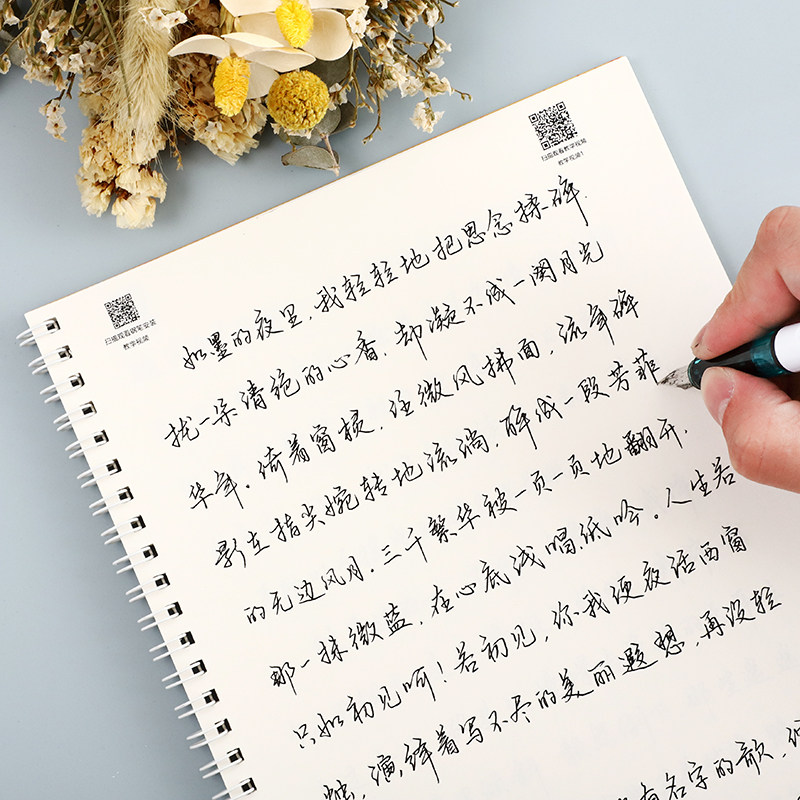 扫描观看教学视频
教学视频1
扫描观看钢笔安装
教学视频
如墨的夜里,我轻轻地把思念揉碎.
拢一朵清绝的心香.却凝不成一阕月光
华年.倚着窗棂.任微风拂面,流年碎
影在指尖婉转地流淌.酿成一段芳菲
的无边风月.三千繁华被一页一页地翻开.
那一抹微蓝,在心底浅唱低吟。人生若
只如初见呵!若初见,你我便夜话西窗
烛,演绎着写不尽的美丽遐想,再没轻
有名字的歌,